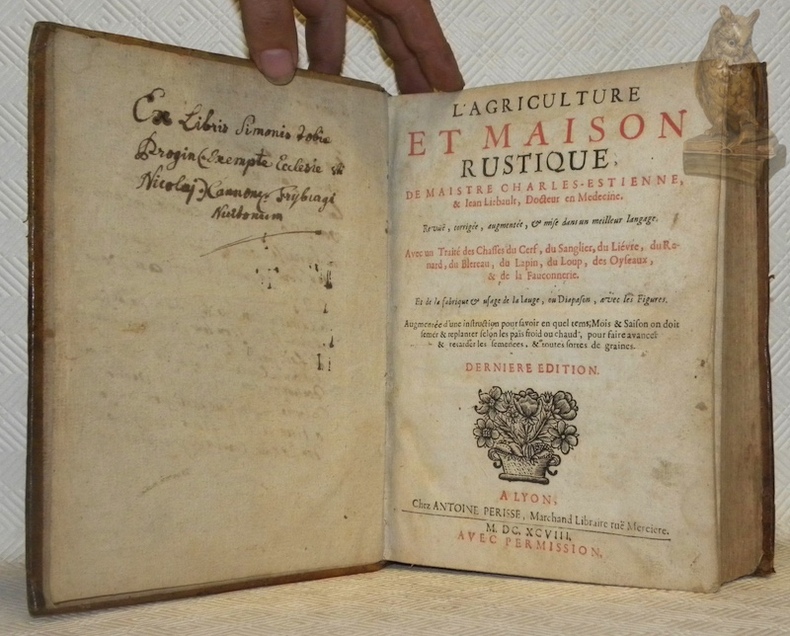 Ex Libris Simonis Tobie
Progin (Exempte Ecclesie sti
Nicolaj) Canonci Fryburgi
Nuitonum
L'AGRICULTURE
ET MAISON
RUSTIQUE,
DE MAISTRE CHARLES-ESTIENNE,
& Jean Liebault, Docteur en Medecine.
Revuë, corrigée, augmentée, & mise dans un meilleur langage.
Avec un Traité des Chasses du Cerf, du Sanglier, du Liévre, du Re-
nard, du Blereau, du Lapin, du Loup, des Oyseaux,
& de la Fauconnerie.
Et de la fabrique & usage de la Jauge, ou Diapason, avec les Figures.
Augmentée d'une instruction pour savoir en quel tems, Mois & Saison on doit
semer & replanter selon les païs froid ou chaud, pour faire avancer
& retarder les semences, & toutes sortes de graines.
DERNIERE EDITION.
A LYON,
Chez ANTOINE PERISSE, Marchand Libraire ruë Merciere.
M. DC. XCVIII,
AVEC PERMISSION.